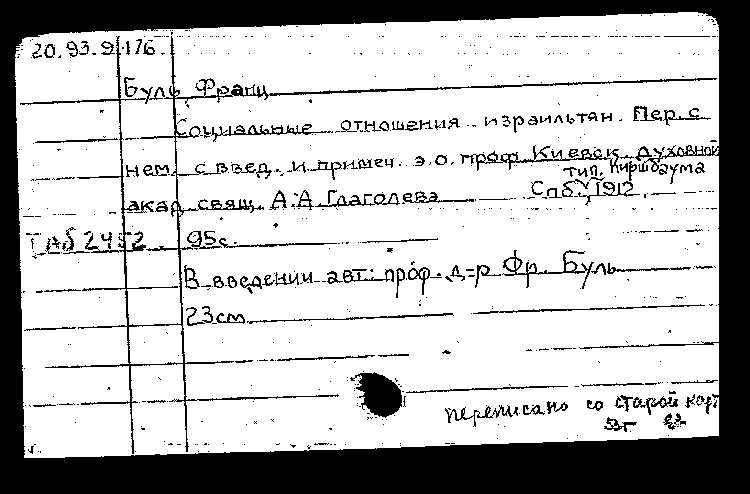 20.93.9.176.
Буль Франц
Социальные отношения израильтян. Пер. с
нем. с введ. и примеч. э.о. проф. Киевск. духовной
акад. свящ. А.А. Глаголева Спб., тип. Киршбаума 1912.
95с.
В введении авт: проф. д=р Фр. Буль
23см
переписано со старой карт